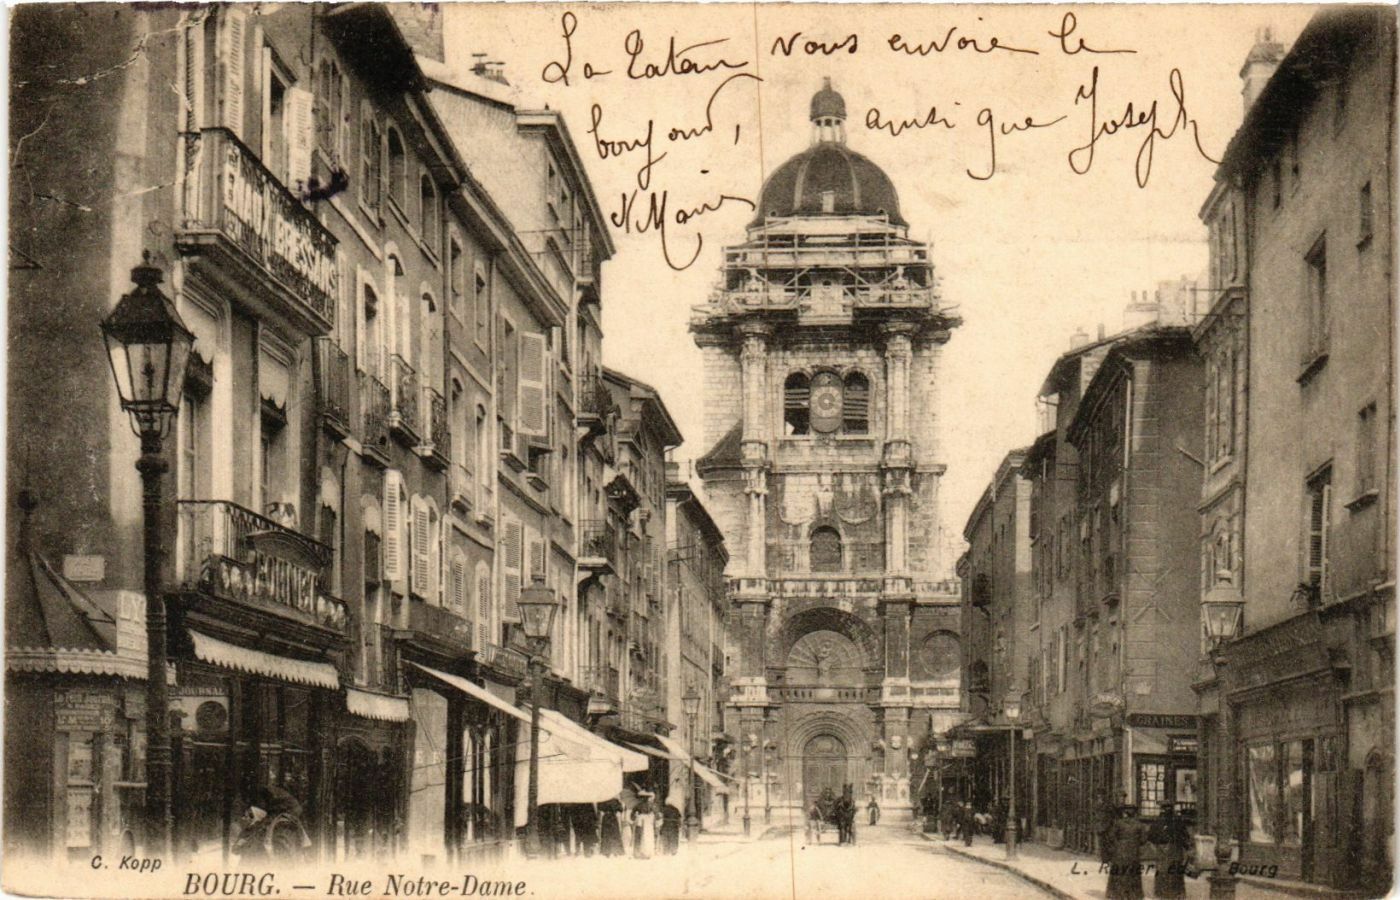 La Tatan vous envoie le
bonjour, ainsi que Joseph
N Marie
EMAUX BRESSANS
JOURNAL
GRAINES
C. Kopp
BOURG. — Rue Notre-Dame.
L. Ravier, éd. — Bourg